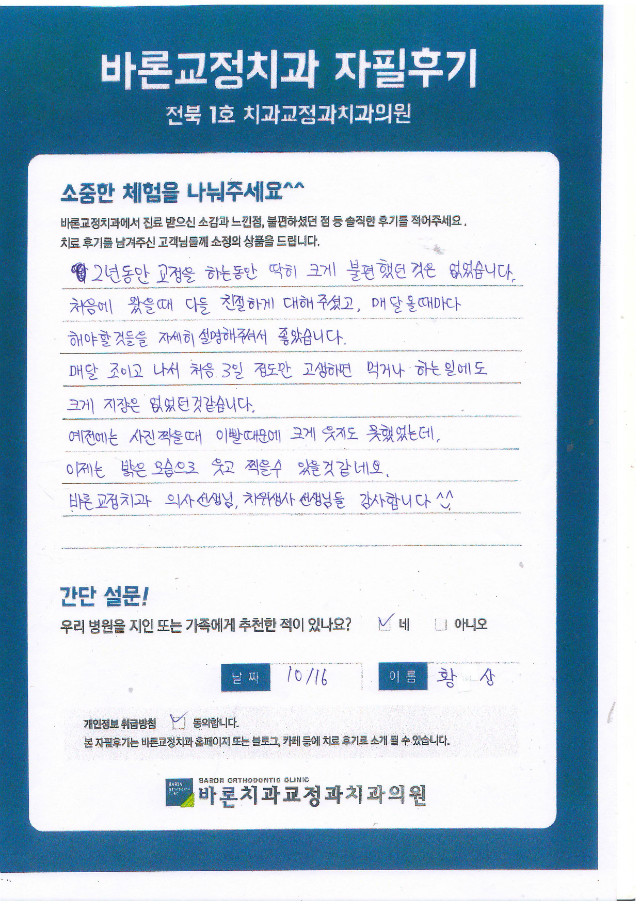 바론교정치과 자필후기
전북 1호 치과교정과치과의원
소중한 체험을 나눠주세요^^
바론교정치과에서 진료 받으신 소감과 느낀점, 불편하셨던 점 등 솔직한 후기를 적어주세요.
치료 후기를 남겨주신 고객님들께 소정의 상품을 드립니다.
2년동안 교정을 하는동안 딱히 크게 불편했던것은 없었습니다.
처음에 왔을때 다들 친절하게 대해주셨고, 매달올때마다
해야할것들을 자세히 설명해주셔서 좋았습니다.
매달 조이고 나서 처음 3일 정도만 고생하면 먹거나 하는일에도
크게 지장은 없었던것같습니다.
예전에는 사진찍을때 이빨때문에 크게 웃지도 못했었는데,
이제는 밝은 모습으로 웃고 찍을수 있을것같네요.
바론교정치과 의사선생님, 치위생사 선생님들 감사합니다^^
간단 설문!
우리 병원을 지인 또는 가족에게 추천한 적이 있나요? 네 아니오
날짜 10/16 이름 황 상
개인정보 취급방침 동의합니다.
본 자필후기는 바론교정치과 홈페이지 또는 블로그, 카페 등에 치료 후기로 소개 될 수 있습니다.
BARON ORTHODONTIC CLINIC
바론치과교정과치과의원